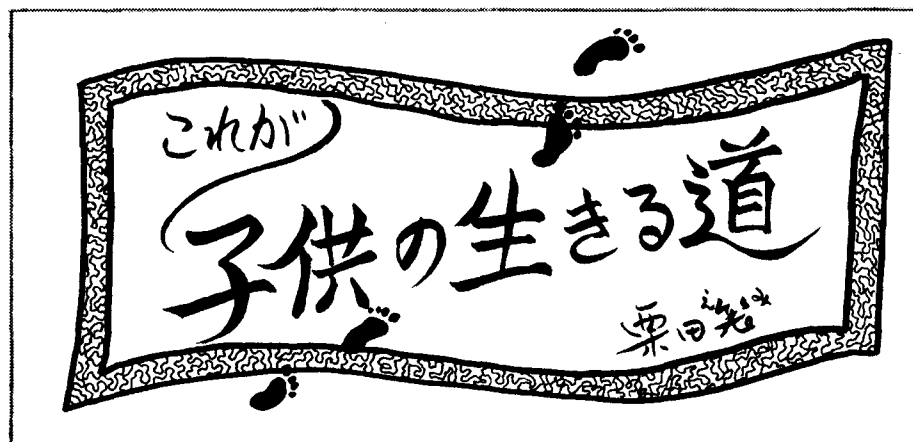 これが
子供の生きる道
栗田